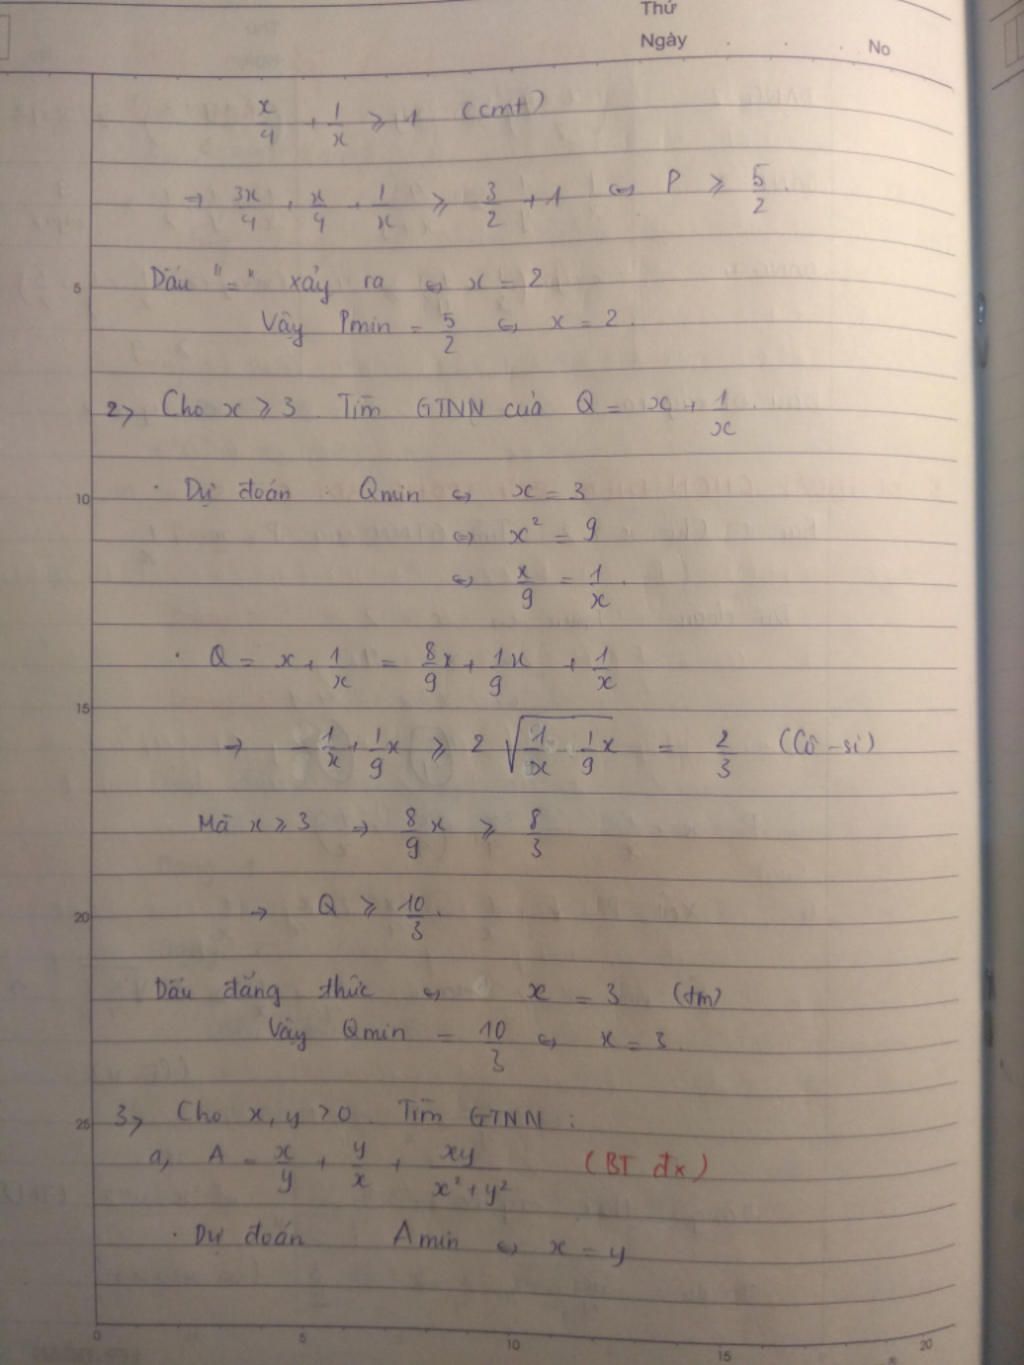 Thứ
Ngày . . . No
x/4 + 1/x ≥ 1 (cmt)
→ 3x/4 + x/4 + 1/x ≥ 3/2 + 1 ⇔ P ≥ 5/2.
5
Dấu "=" xảy ra ⇔ x = 2
Vậy Pmin = 5/2 ⇔ x = 2.
2> Cho x ≥ 3. Tìm GTNN của Q = x + 1/x.
10
· Dự đoán : Qmin ⇔ x = 3
⇔ x² = 9
⇔ x/9 = 1/x.
· Q = x + 1/x = 8/9 x + 1/9 x + 1/x
15
→ - 1/x + 1/9 x ≥ 2 √(1/x · 1/9 x) = 2/3 (Cô-si)
Mà x ≥ 3 → 8/9 x ≥ 8/3
20
→ Q ≥ 10/3.
Dấu đẳng thức ⇔ x = 3 (tm)
Vậy Qmin = 10/3 ⇔ x = 3.
25
3> Cho x, y > 0. Tìm GTNN :
a, A = x/y + y/x + xy/(x² + y²) (BT đx)
· Dự đoán Amin ⇔ x = y
0 5 10 15 20